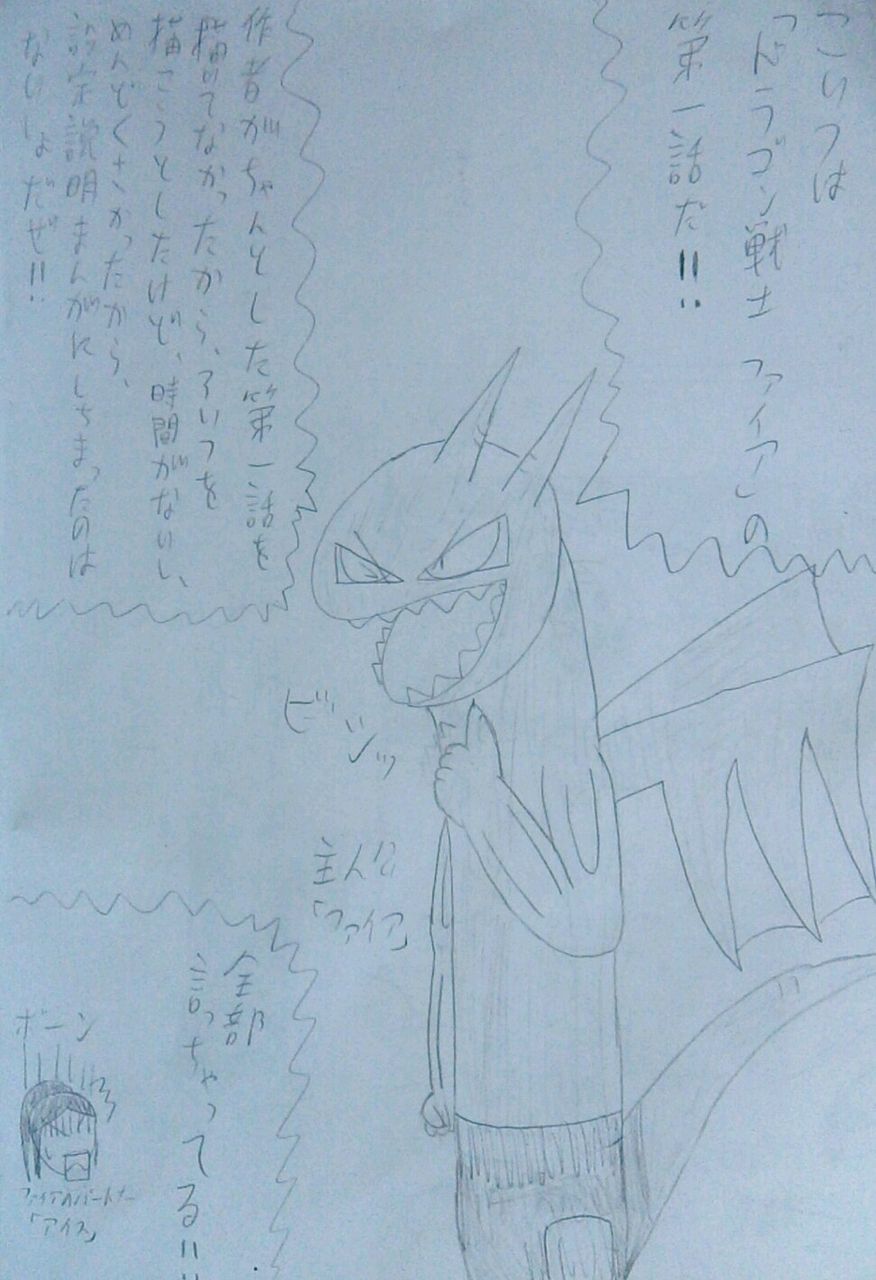 こいつは
「ドラゴン戦士 ファイア」の
第一話だ!!
作者がちゃんとした第一話を
描けてなかったから、あいつを
描こうとしたけど、時間がないし、
めんどくさかったから、
設定説明まんがにしちまったのは
ないしょだぜ!!
ビシッ
主人公
「ファイア」
全部
言っちゃってる!!
ボーン
ファイアのパートナー
「アイス」